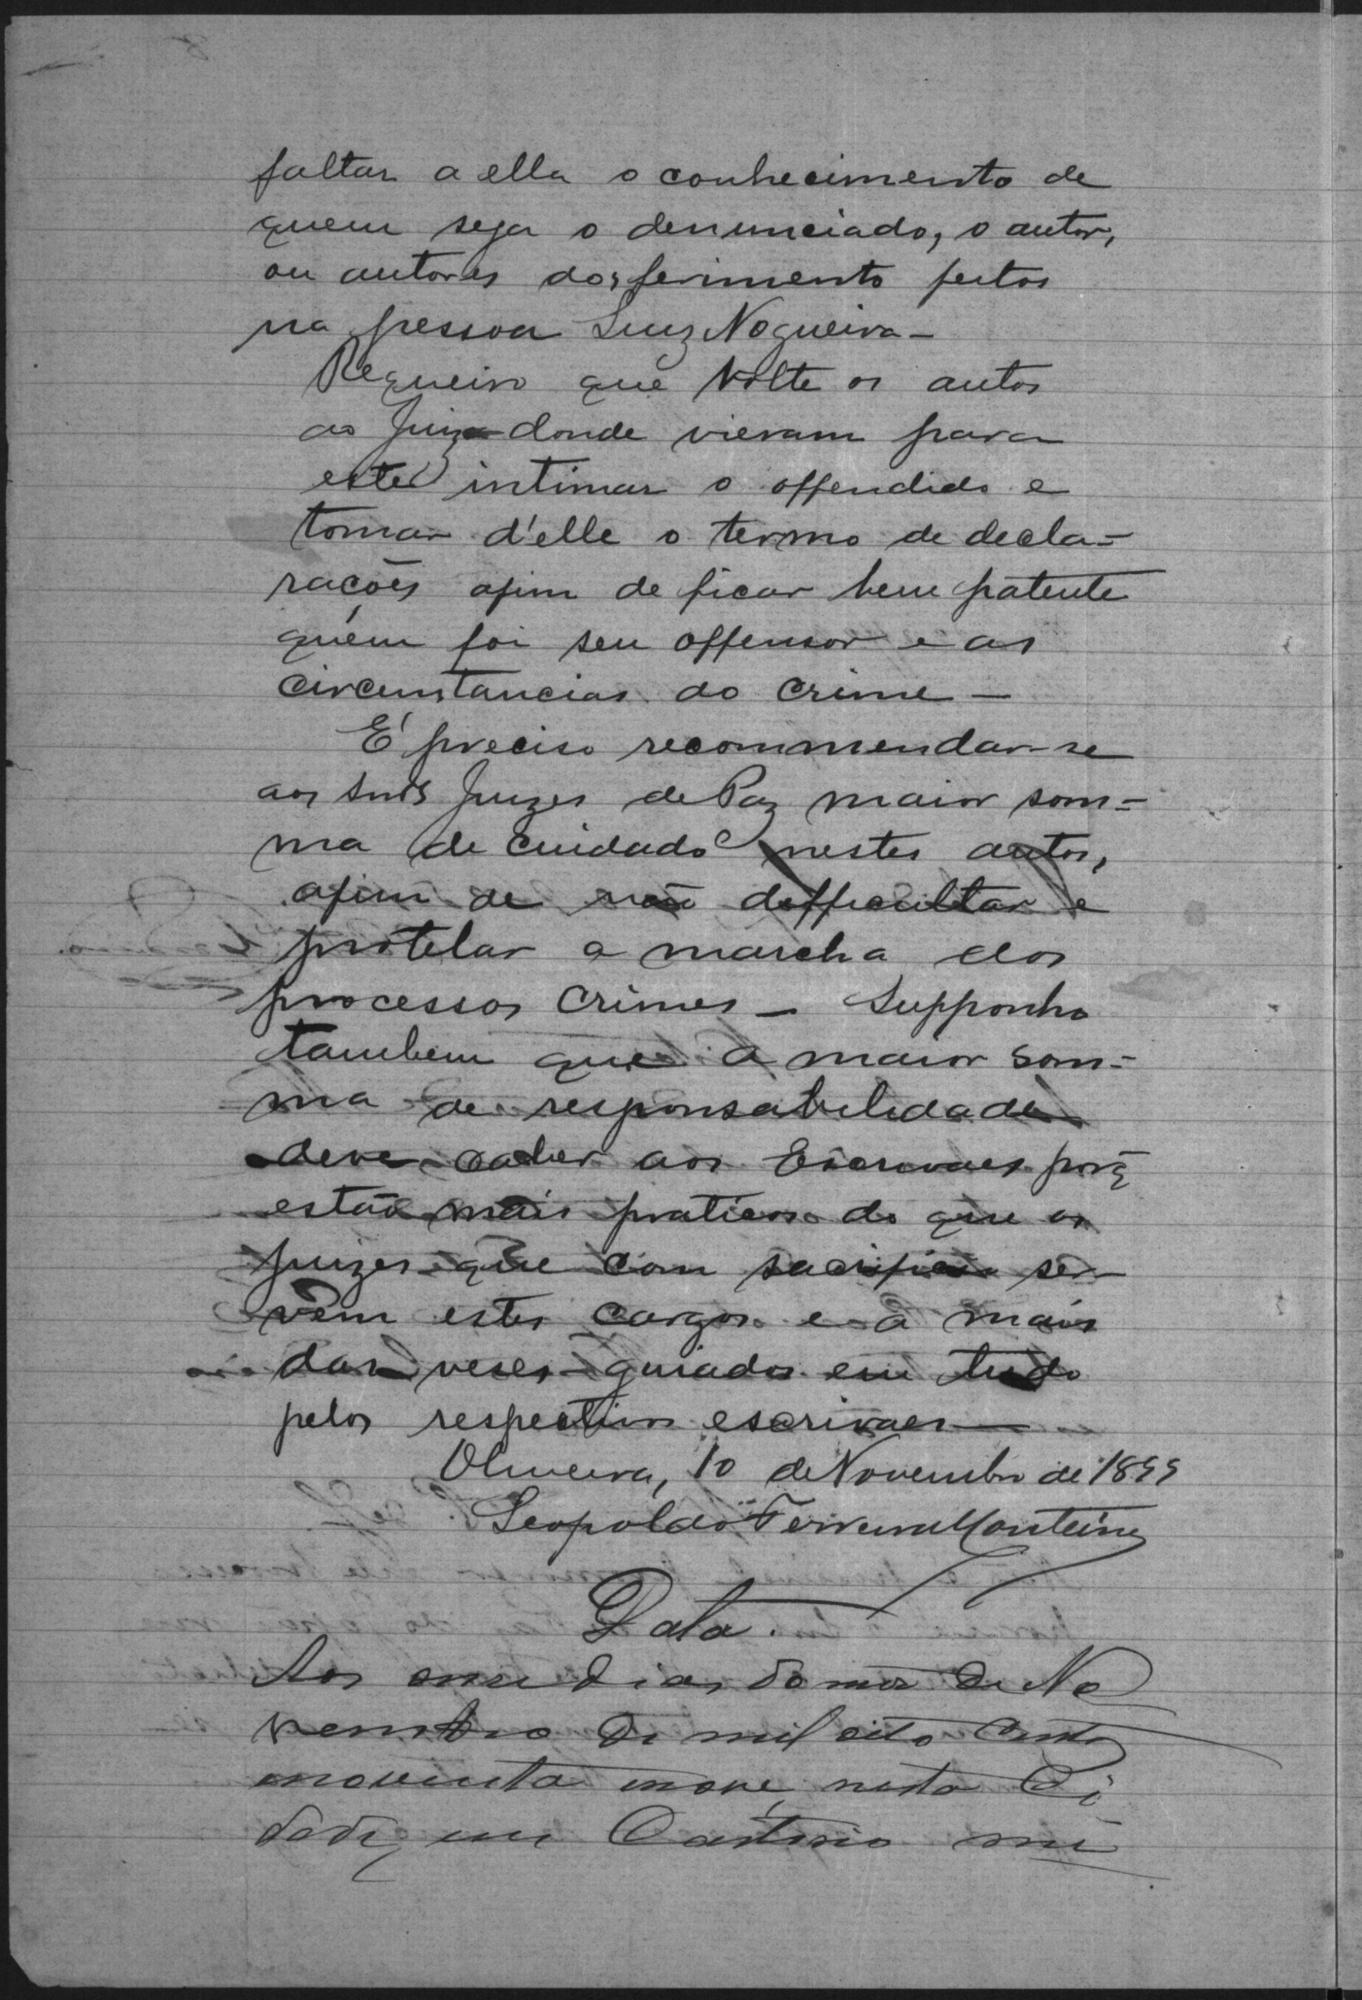 faltar a ella o conhecimento de
quem seja o denunciado, o autor,
ou autores dos ferimento feitos
na pessoa Luiz Nogueira —
Requeiro que volte os autos
ao Juiz donde vieram para
este intimar o offendido e
tomar d'elle o termo de decla=
racões afim de ficar bem patente
quem foi seu offensor e as
circumstancias do crime —
É preciso recommendar-se
aos Snrs Juizes de Paz maior som=
ma de cuidado nestes autos,
afim de não difficultar e
protelar a marcha dos
processos crimes — Supponho
tambem que a maior som=
ma de responsabilidade
deve caber aos Escrivaes porq̃
estão mais praticos do que os
juizes que com sacrificio ser
vem estes cargos e a mais
das veses guiados em tudo
pelos respectivos escrivaes —
Oliveira, 10 de Novembro de 1899
Leopoldo Ferreira Monteiro
Data.
Aos onse dias do mez de No
vembro de mil oito centos
noventa nove, nesta Ci
dade, em Cartorio me